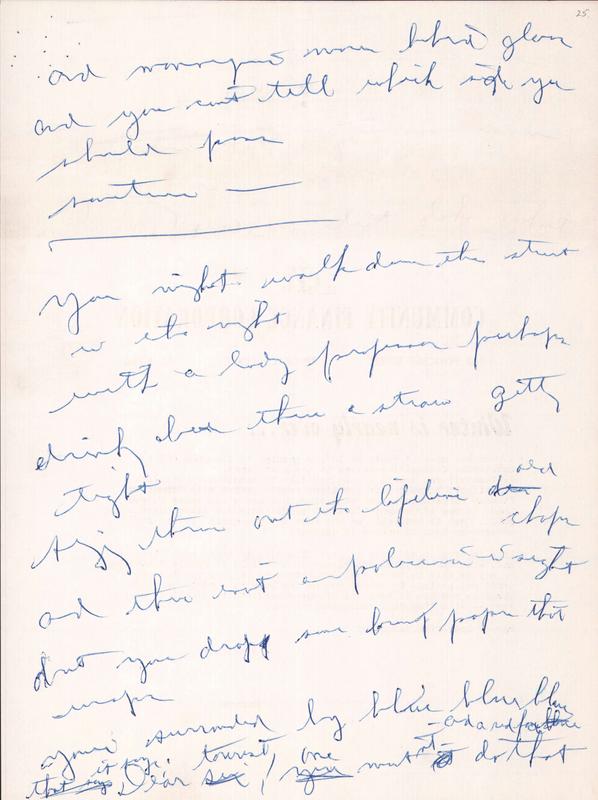 25.
and mannequins move behind glass
and you can't tell which side you
should pass
sometime —
you might walk down the street
in the night
with a lady professor perhaps
drink beer thru a straw getting
tight
they throw out the lifeline and
chips
and there isn't a policeman in sight
but you drop some brown paper that
wraps
you're surrounded by blue blue blue
and a red
it says, Dear tourist, one must not do that